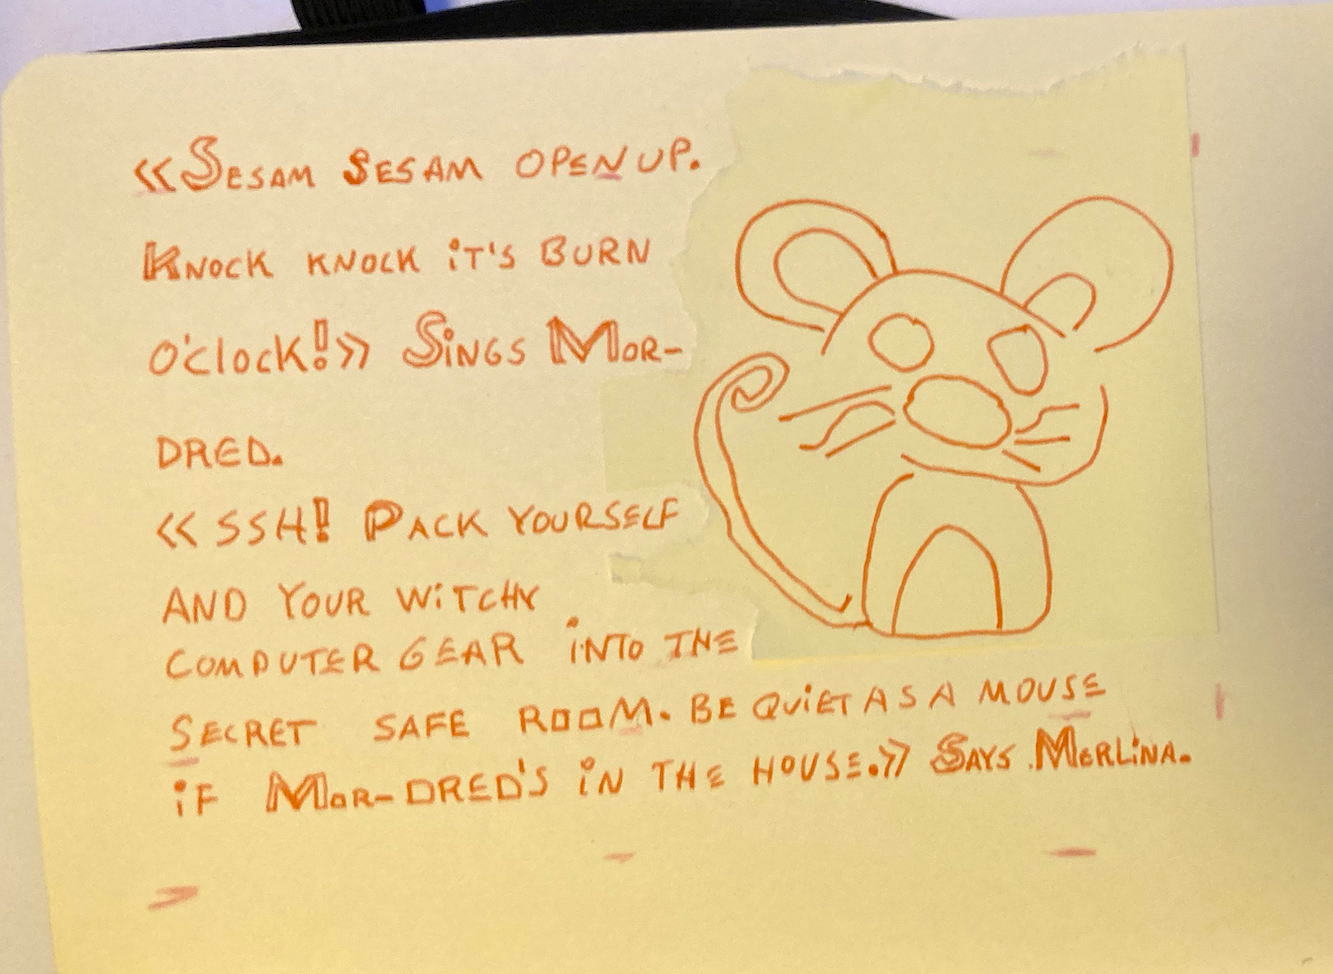 «Sesam Sesam open up.
Knock knock it's burn
o'clock!» Sings Mor-
dred.
«Ssh! Pack yourself
and your witchy
computer gear into the
secret safe room. Be quiet as a mouse
if Mor-dred's in the house.» Says Merlina.